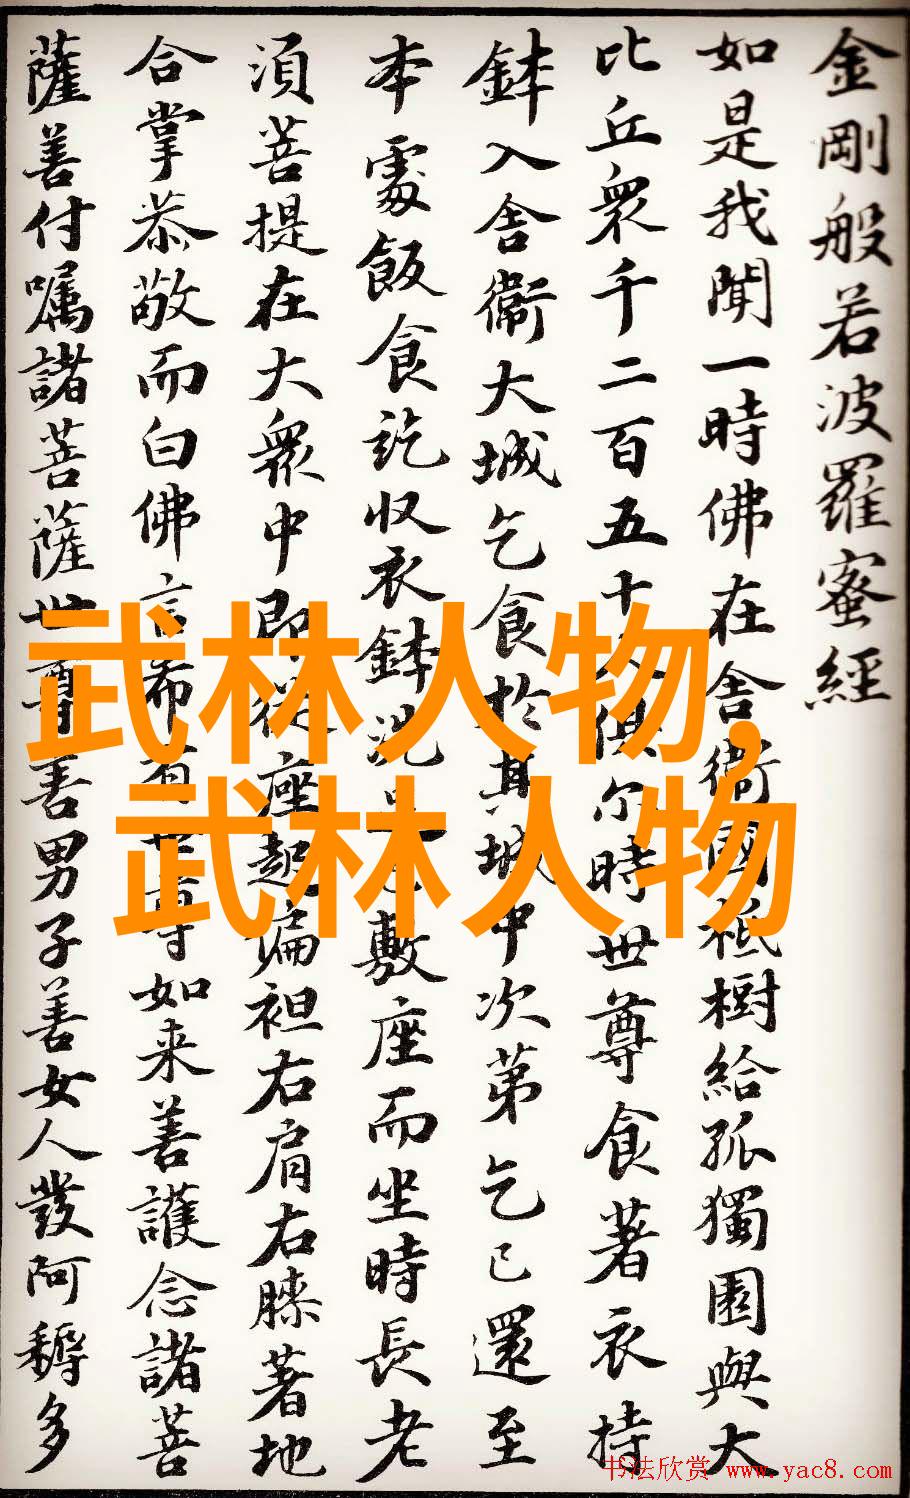 金剛般若波羅蜜經
如是我聞一時佛在舍衛國祇樹給孤獨園與大
比丘衆千二百五十人俱尔時世尊食著衣持
鉢入舍衛大城乞食於其城中次第乞已還至
本處飯食訖収衣鉢洗足已敷座而坐時長老
須菩提在大衆中即從座起偏袒右肩右膝著地
合掌恭敬而白佛言希有世尊如来善護念諸菩
薩善付嘱諸菩薩世尊善男子善女人發阿耨多
武林人物,
武林人物
书法欣赏 www.yac8.com